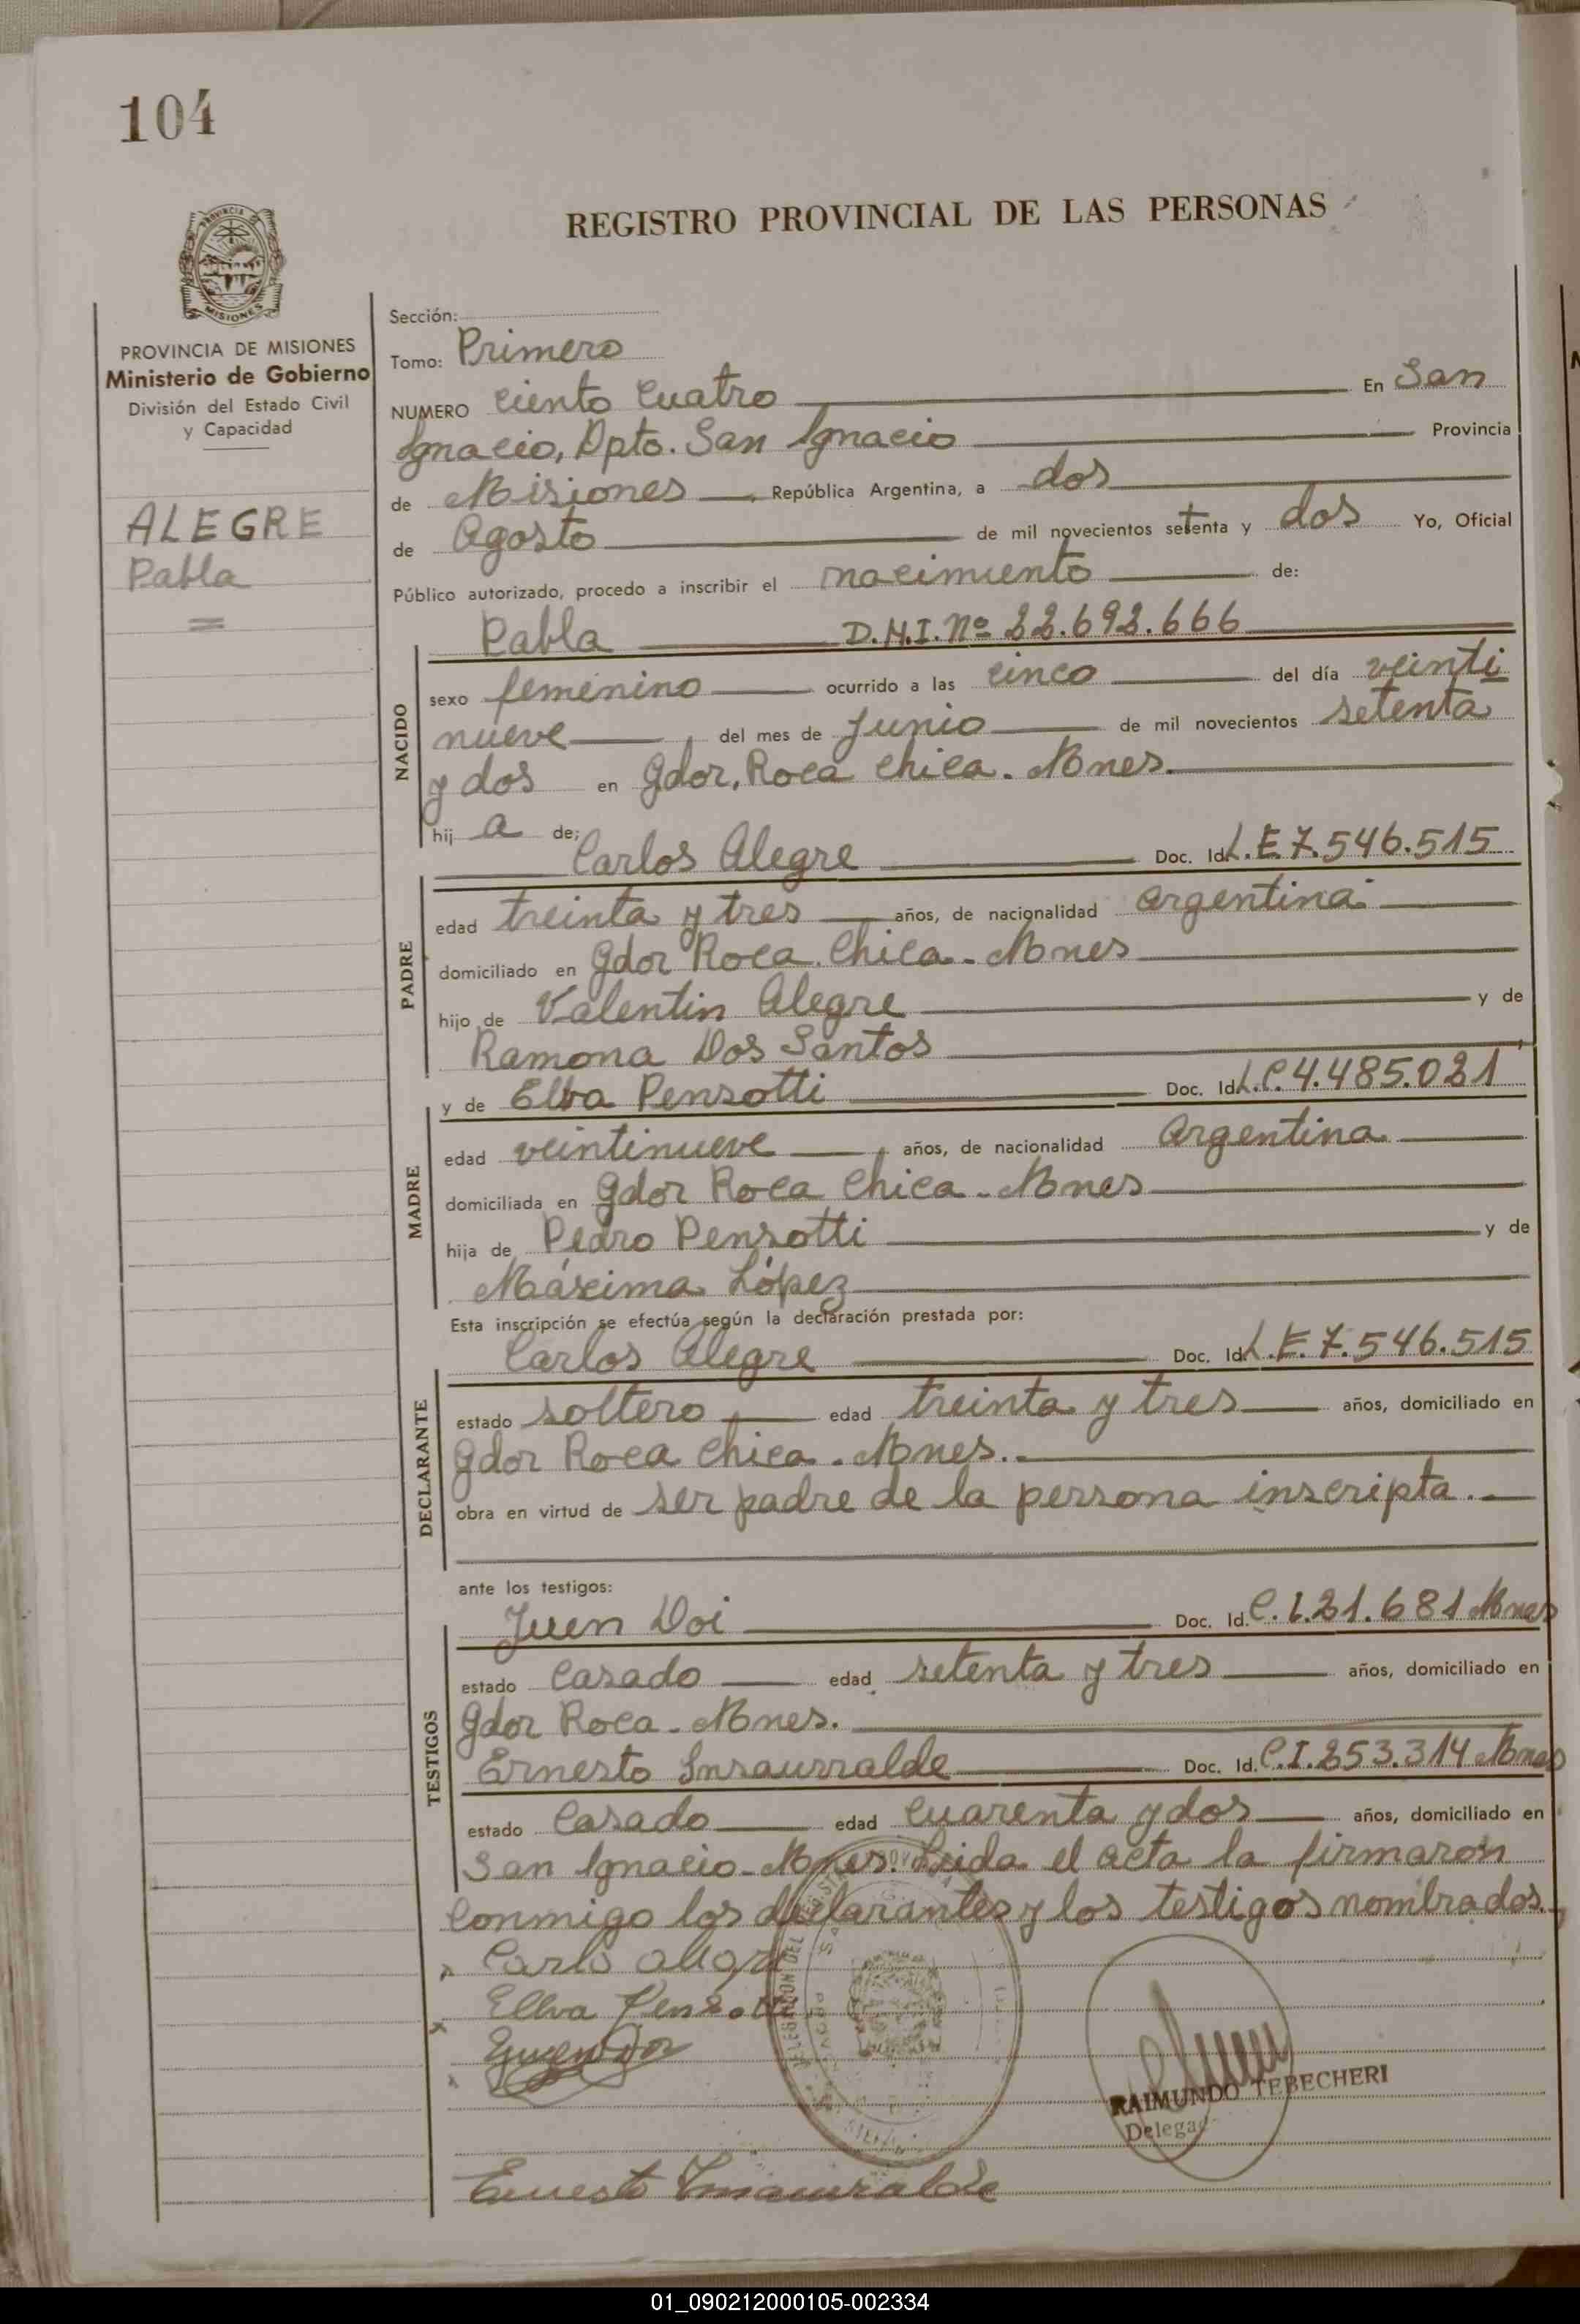 104
REGISTRO PROVINCIAL DE LAS PERSONAS
PROVINCIA DE
MISIONES
PROVINCIA DE MISIONES
Ministerio de Gobierno
División del Estado Civil
y Capacidad
ALEGRE
Pabla
=
Sección:
Tomo: Primero
NUMERO ciento cuatro En San
Ignacio, Dpto. San Ignacio Provincia
de Misiones República Argentina, a dos
de Agosto de mil novecientos setenta y dos Yo, Oficial
Público autorizado, procedo a inscribir el nacimiento de:
Pabla D.N.I. Nº 22.692.666
NACIDO
sexo femenino ocurrido a las cinco del día veinti
nueve del mes de Junio de mil novecientos setenta
y dos en Gdor. Roca Chica. Mnes.
hij a de:
Carlos Alegre Doc. Id. L.E. 7.546.515
PADRE
edad treinta y tres años, de nacionalidad argentina
domiciliado en Gdor Roca Chica - Mnes
hijo de Valentin Alegre y de
Ramona Dos Santos
y de Elva Pensotti Doc. Id. L.C. 4.485.021
MADRE
edad veintinueve años, de nacionalidad argentina
domiciliada en Gdor Roca Chica - Mnes
hija de Pedro Pensotti y de
Máxima López
Esta inscripción se efectúa según la declaración prestada por:
Carlos Alegre Doc. Id. L.E. 7.546.515
DECLARANTE
estado soltero edad treinta y tres años, domiciliado en
Gdor Roca Chica - Mnes.
obra en virtud de ser padre de la persona inscripta.
ante los testigos:
Juen Doi Doc. Id. C.I. 21.681 Mnes
TESTIGOS
estado casado edad setenta y tres años, domiciliado en
Gdor Roca - Mnes.
Ernesto Insaurralde Doc. Id. C.I. 253.314 Mnes
estado casado edad cuarenta y dos años, domiciliado en
San Ignacio - Mnes. Leida el acta la firmaron
conmigo los declarantes y los testigos nombrados.
Carlo Alegre
Ellva Pensotti
RAIMUNDO TEBECHERI
Delegad
Ernesto Insaurralde
01_090212000105-002334